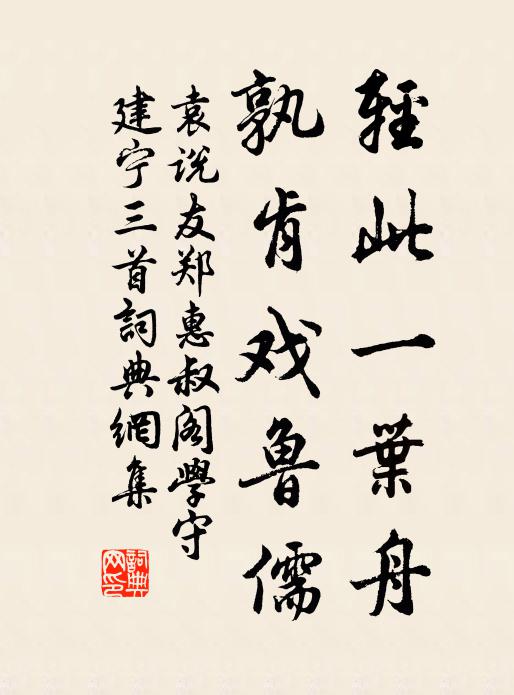 輕此一葉舟
孰肯戏魯儒
袁说友郑惠叔阁學守
建宁三首詞典網集
詞典
网印